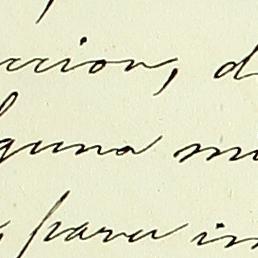 ccion, d
lguna m
para in